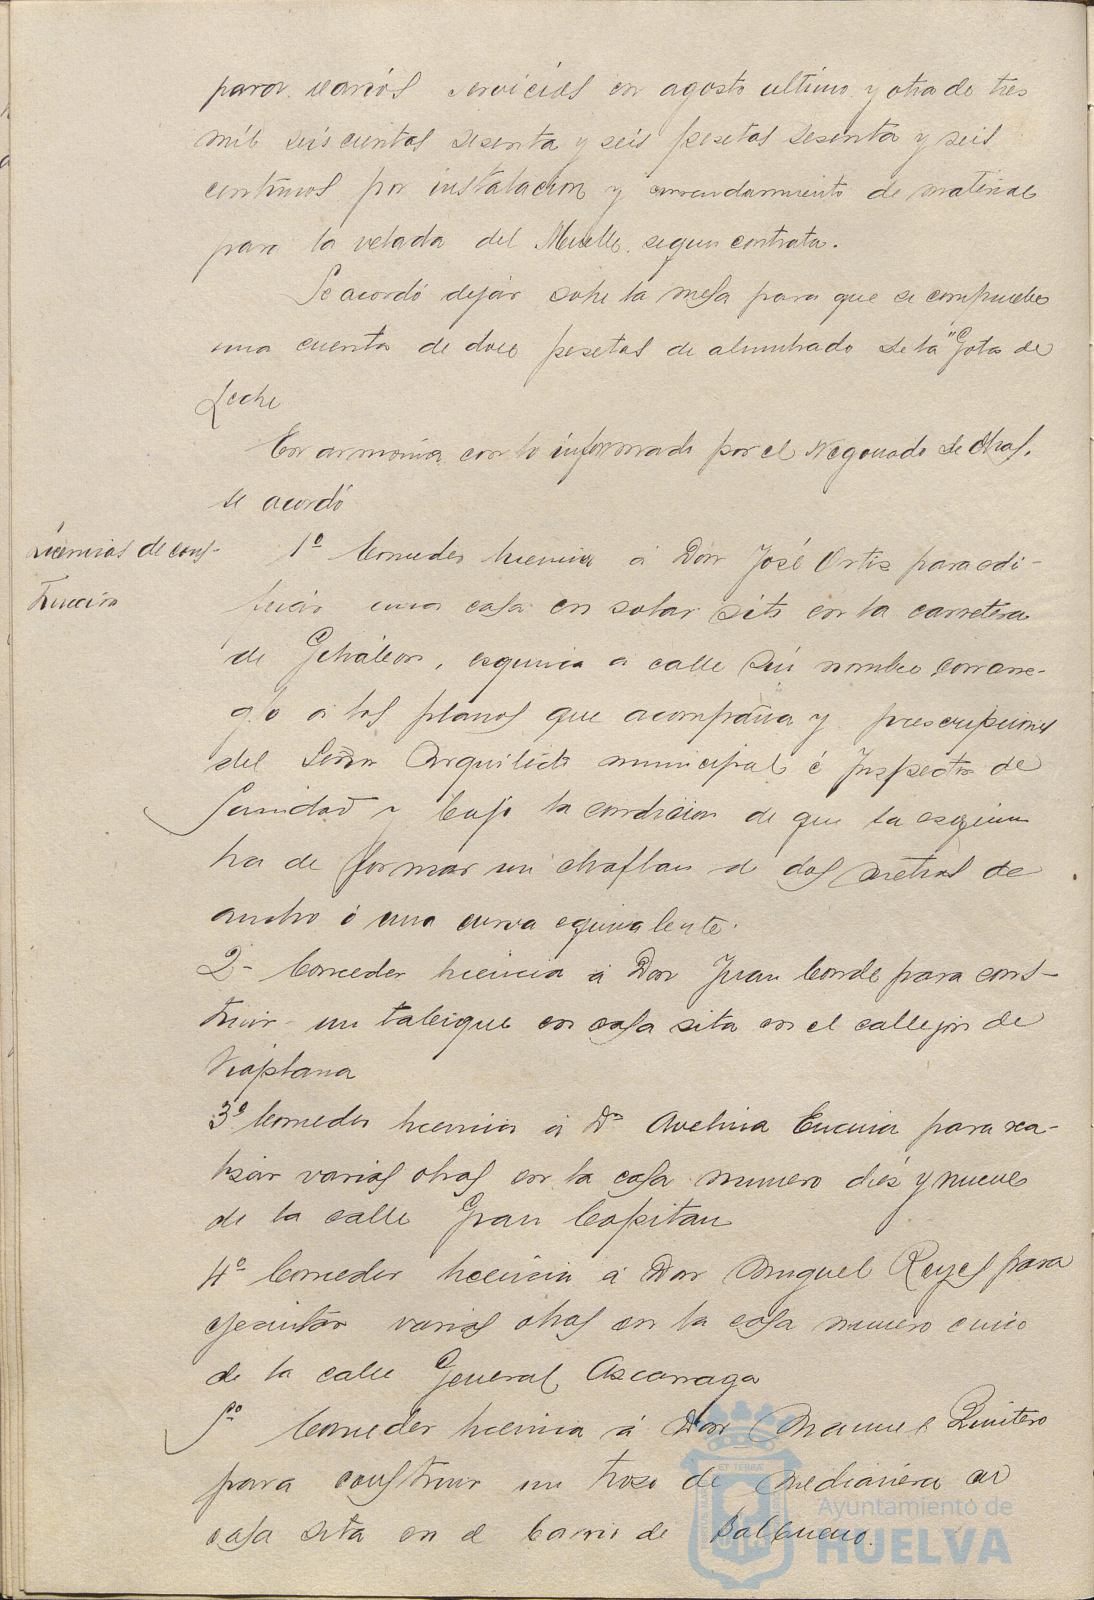 para varios servicios en agosto ultimo y otra de tres
mil seiscientas sesenta y seis pesetas sesenta y seis
centimos por instalacion y arrendamiento de material
para la velada del Muelle segun contrata.
Se acordó dejar sobre la mesa para que se compruebe
una cuenta de doce pesetas de alumbrado de la "Gota de
Leche
En armonia con lo informado por el Negociado de Obras,
se acordó
Licencias de cons-
trucción
1º Conceder licencia á Don José Ortiz para edi-
ficar una casa en solar sito en la carretera
de Gibraleon, esquina a calle sin nombre con arre-
glo a los planos que acompaña y prescripciones
del Señor Arquitecto municipal é Inspector de
Sanidad y bajo la condicion de que la esquina
ha de formar un chaflan de dos metros de
ancho ó una curva equivalente.
2º Conceder licencia á Don Juan Conde para cons-
truir un tabique en casa sita en el callejon de
Viaplana
3º Conceder licencia á Dª Avelina para rea-
lizar varias obras en la casa numero diez y nueve
de la calle Gran Capitan
4º Conceder licencia á Don Miguel Reyes para
ejecutar varias obras en la casa numero cinco
de la calle General Azcarraga
5º Conceder licencia á Don Manuel Quintero
para construir un trozo de medianera en
casa sita en el barrio de Balbueno.
Ayuntamiento de
HUELVA